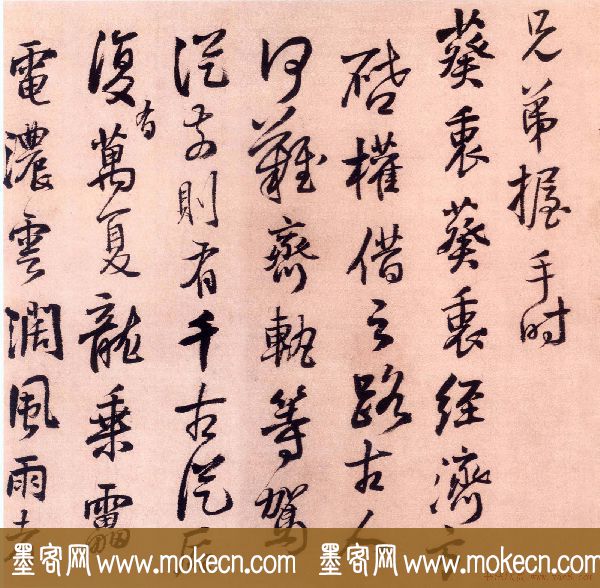 兄弟握手时
葵衷葵衷經濟
啓權借之路古人
何難齊軌等駕
從前則有千古從
復有萬夏龍乘雷
電濃雲風雨
墨客网 www.mokecn.com 墨客网 www.mokecn.com